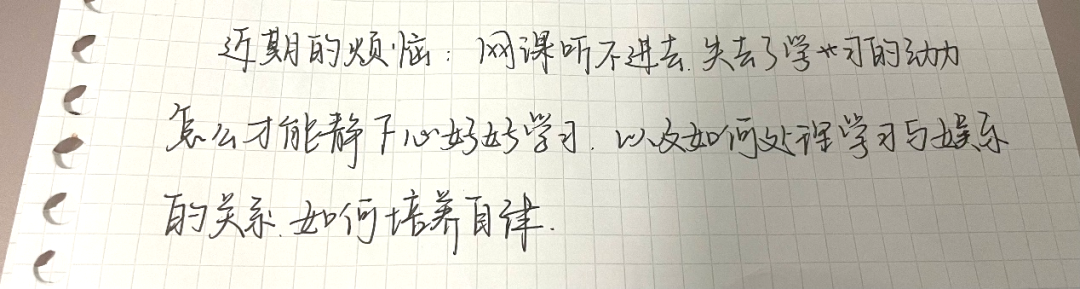 近期的烦恼：网课听不进去.失去了学习的动力
怎么才能静下心好好学习.以及如何处理学习与娱乐
的关系.如何培养自律.